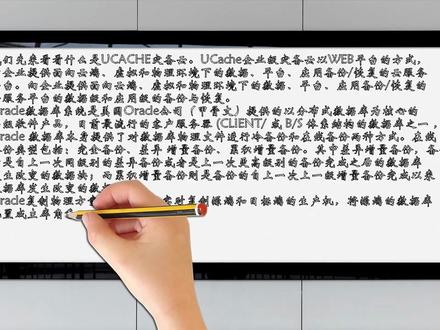 们先来看看什么是UCACHE灾备云。UCache企业级灾备云以WEB平台的方式，
企业提供面向云端、虚拟和物理环境下的数据、平台、应用备份/恢复的云服
平台。向企业提供面向云端、虚拟和物理环境下的数据、平台、应用备份/恢复的
服务平台的数据级和应用级的备份与恢复。
racle数据库系统是美国Oracle公司（甲骨文）提供的以分布式数据库为核心的
组软件产品，目前最流行的客户服务器(CLIENT/ 或B/S体系结构的数据库之一，
racle数据库本身提供了对数据库物理文件进行冷备份和在线备份两种方式。在线
份类型包括：完全备份、差异增量备份、累积增量备份。其中差异增量备份，备
是自上一次同级别的差异备份或者是上一次更高级别的备份完成之后的数据库
生改变的数据块；而累积增量备份则是备份的自上一次完全增量备份完成以来
据库发生改变的数据块。
racle复制物理文件 实时复制源端和目标端的生产机，将源端的数据库
置成主库角